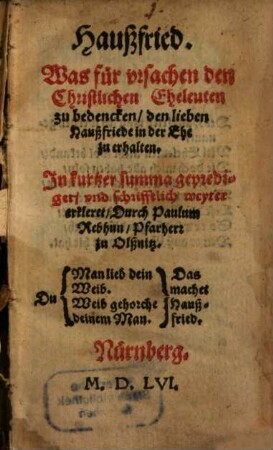 Haußfried.
Was für vrsachen den
Christlichen Eheleuten
zu bedencken / den lieben
Haußfriede in der Ehe
zu erhalten.
In kurtzer summa gepredi-
get / vnd schrifftlich weyter
erkleret / Durch Paulum
Rebhun / Pfarherr
zu Olßnitz.
Man lieb dein Das
Weib. machet
Du
Weib gehorche Hauß-
deinem Man. fried.
Nürnberg.
M. D. LVI.